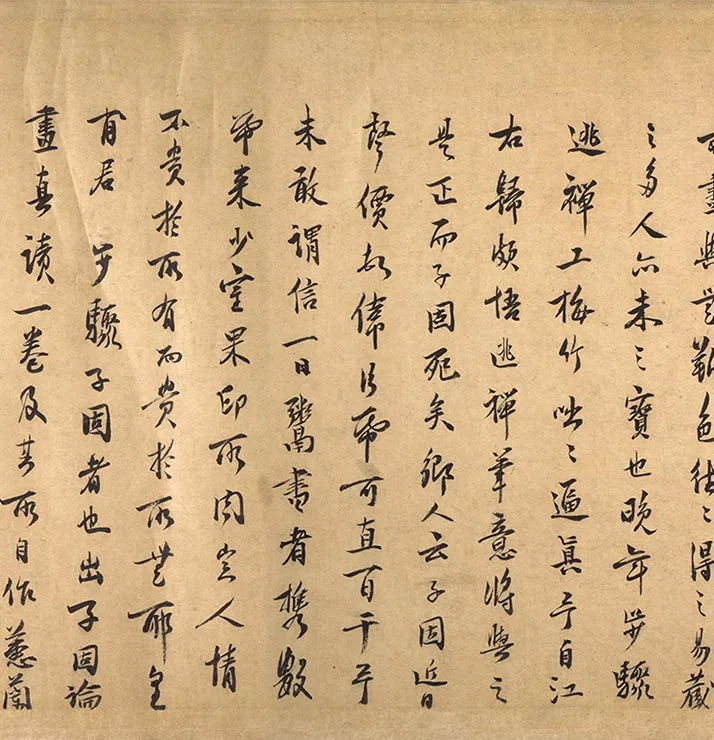 畫與無難色往往得之易藏
之多人亦未之寶也晚年步驟
逃禪工梅竹咄咄逼真予自江
右歸頗悟逃禪筆意將與之
是正而子固死矣鄉人云子固近日
聲價頓偉片帋可直百千予
未敢謂信一日鬻書者攜數
帋來少室果印所聞豈人情
不貴於所有而貴於所無耶
居步驟子固者也出子固論
畫真讀一卷及其所自作蕙蘭